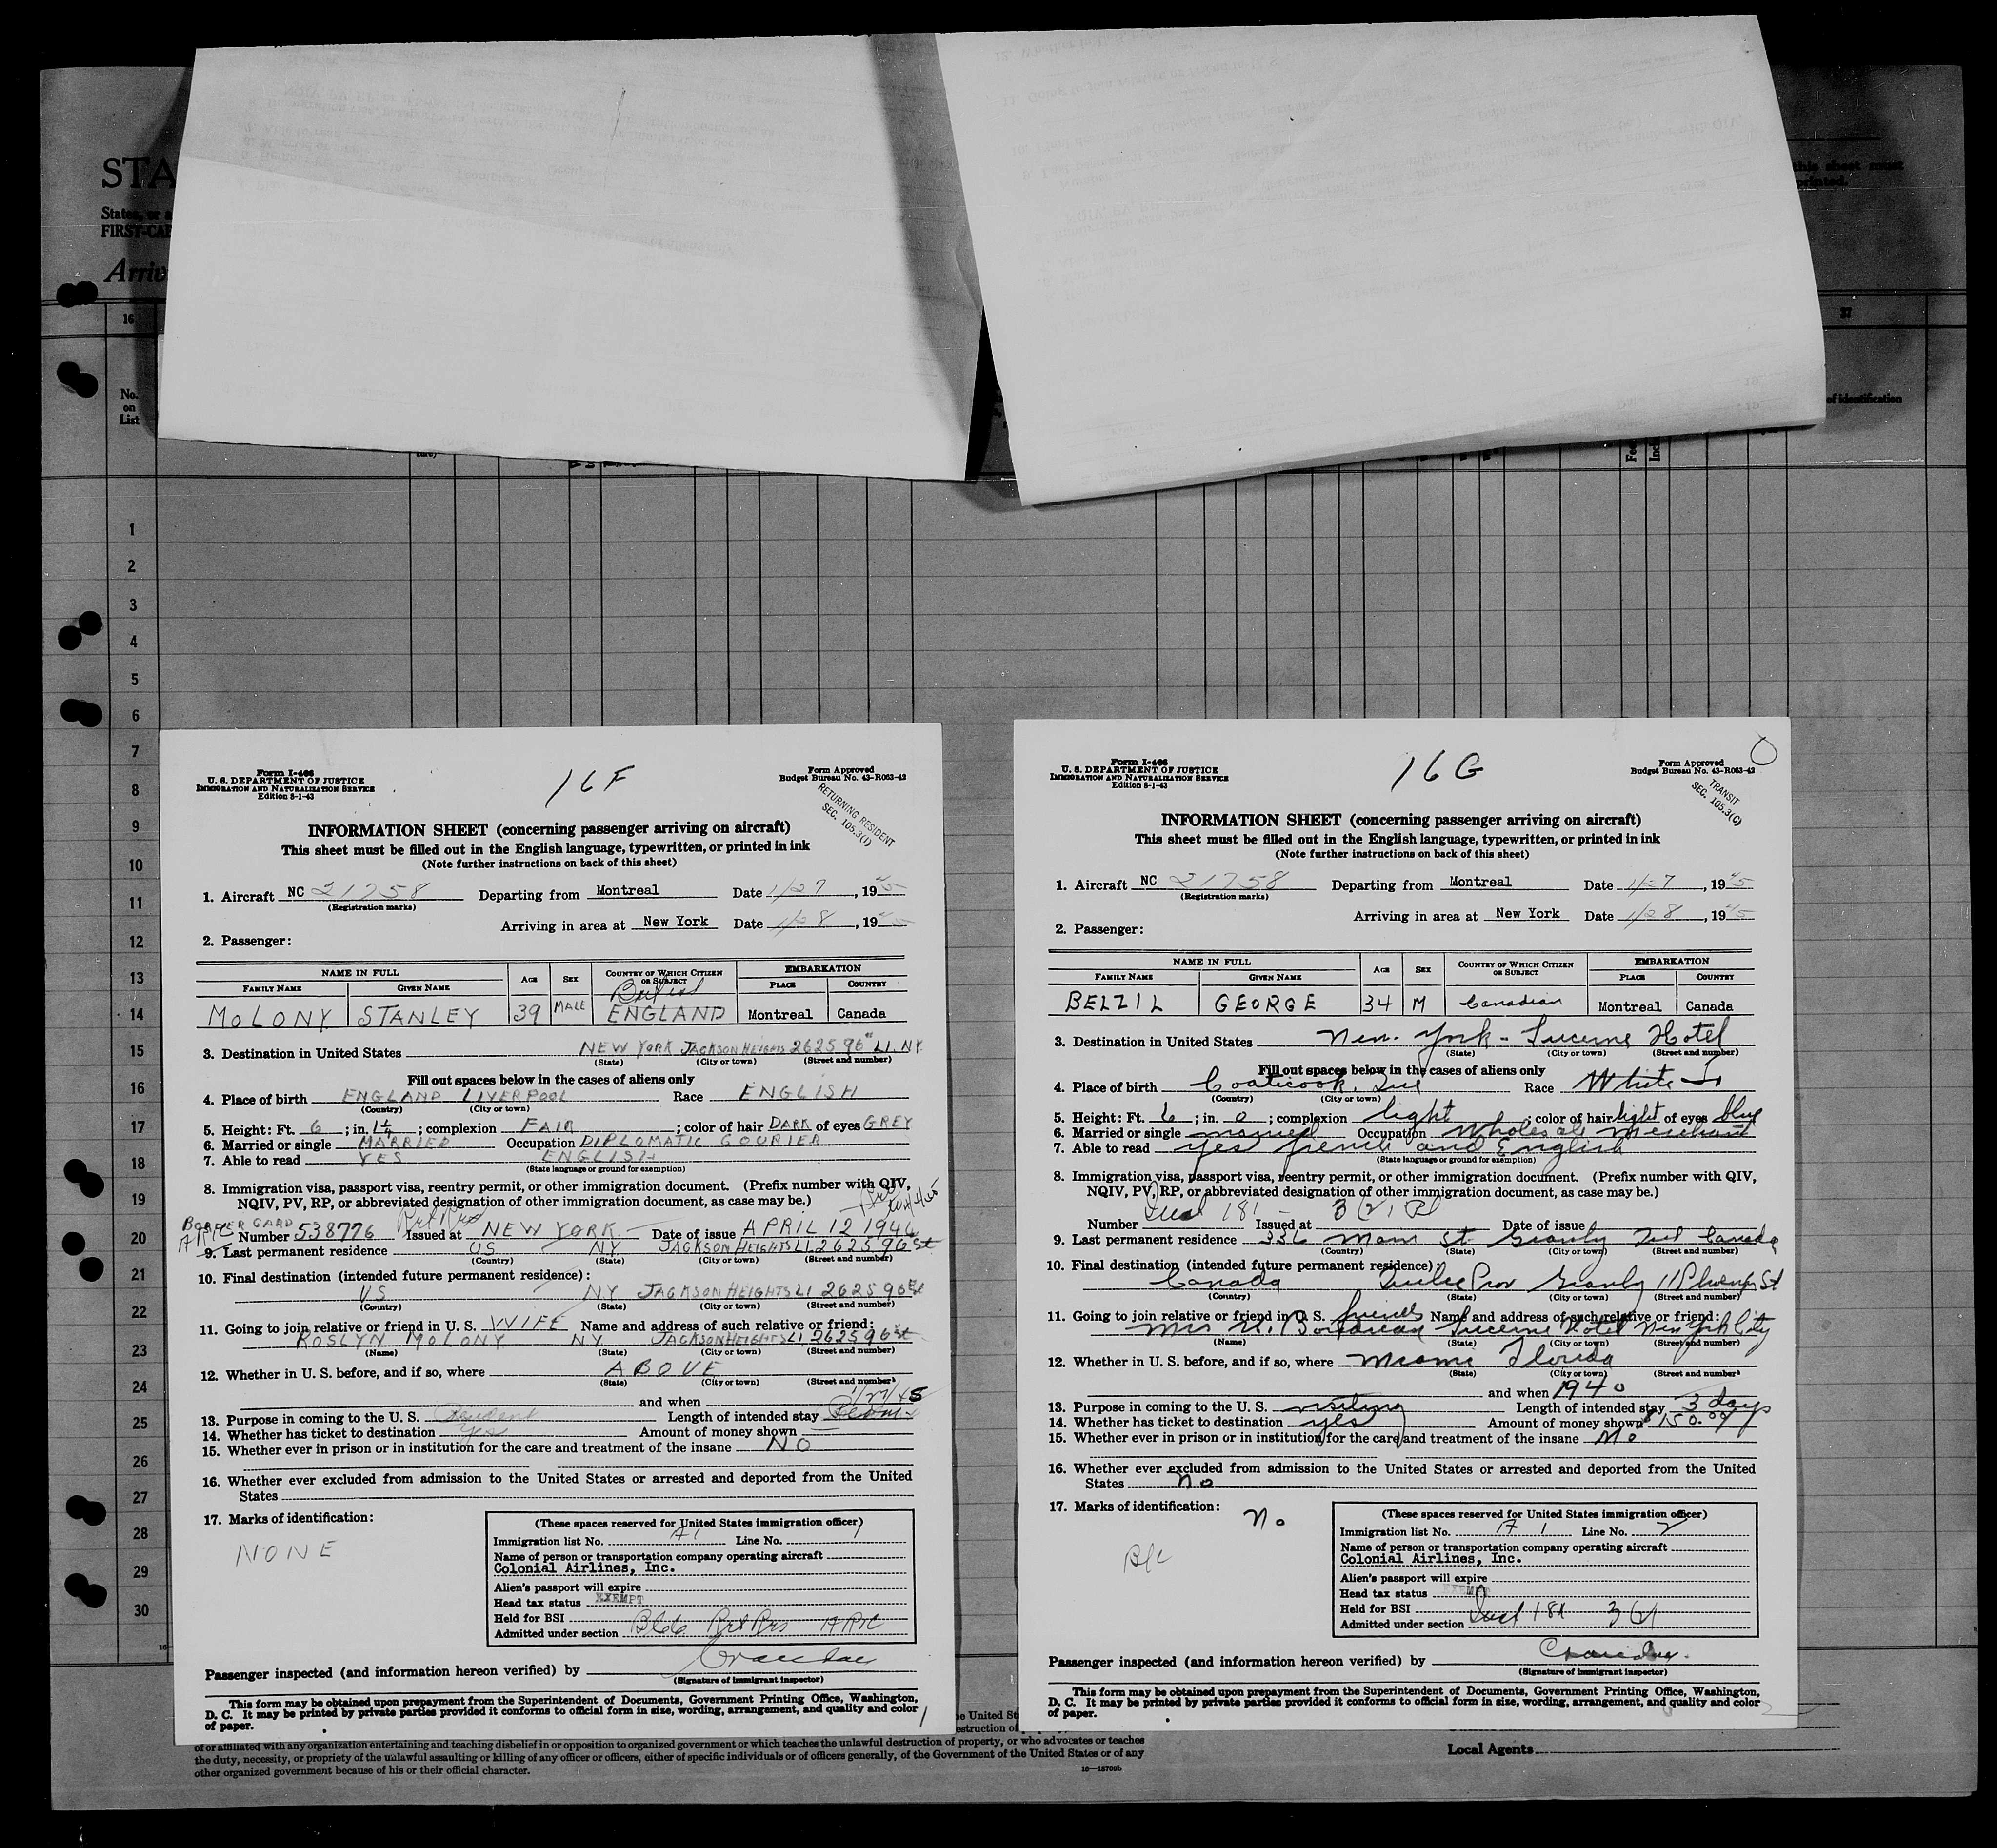 STA
States, or a
FIRST-CAB
Arriv
this sheet must
printed.
16
37
No.
on
List
of identification
1
2
3
4
5
6
7
8
9
10
11
12
13
14
15
16
17
18
19
20
21
22
23
24
25
26
27
28
29
30
Form I-466
U. S. DEPARTMENT OF JUSTICE
IMMIGRATION AND NATURALIZATION SERVICE
Edition 8-1-43
16F
Form Approved
Budget Bureau No. 43-R063-42
RETURNING RESIDENT
SEC. 105.3(1)
INFORMATION SHEET (concerning passenger arriving on aircraft)
This sheet must be filled out in the English language, typewritten, or printed in ink
(Note further instructions on back of this sheet)
1. Aircraft NC 21758 Departing from Montreal Date 1/27, 1945
(Registration marks)
Arriving in area at New York Date 1/28, 1945
2. Passenger:
NAME IN FULL AGE SEX COUNTRY OF WHICH CITIZEN OR SUBJECT EMBARKATION
FAMILY NAME GIVEN NAME PLACE COUNTRY
MOLONY STANLEY 39 MALE ENGLAND Montreal Canada
3. Destination in United States NEW YORK JACKSON HEIGHTS 2625 96th L.I. N.Y.
(State) (City or town) (Street and number)
Fill out spaces below in the cases of aliens only
4. Place of birth ENGLAND LIVERPOOL Race ENGLISH
(Country) (City or town)
5. Height: Ft. 6; in. 1¼; complexion FAIR; color of hair DARK of eyes GREY
6. Married or single MARRIED Occupation DIPLOMATIC COURIER
7. Able to read YES ENGLISH
(State language or ground for exemption)
8. Immigration visa, passport visa, reentry permit, or other immigration document. (Prefix number with QIV,
NQIV, PV, RP, or abbreviated designation of other immigration document, as case may be.)
BORDER CARD
Number 538776 Issued at NEW YORK Date of issue APRIL 12 1944
9. Last permanent residence US NY JACKSON HEIGHTS LI 2625 96 St
(Country) (State) (City or town) (Street and number)
10. Final destination (intended future permanent residence):
US NY JACKSON HEIGHTS LI 2625 96 St
(Country) (State) (City or town) (Street and number)
11. Going to join relative or friend in U. S. WIFE Name and address of such relative or friend:
ROSLYN MOLONY NY JACKSON HEIGHTS LI 2625 96 St
(Name) (State) (City or town) (Street and number)
12. Whether in U. S. before, and if so, where ABOVE
(State) (City or town) (Street and number)
and when 1/27/45
13. Purpose in coming to the U. S. Resident Length of intended stay Perm
14. Whether has ticket to destination Yes Amount of money shown
15. Whether ever in prison or in institution for the care and treatment of the insane NO
16. Whether ever excluded from admission to the United States or arrested and deported from the United
States
17. Marks of identification:
NONE
(These spaces reserved for United States immigration officer)
Immigration list No. A1 Line No. 1
Name of person or transportation company operating aircraft
Colonial Airlines, Inc.
Alien's passport will expire
Head tax status EXEMPT
Held for BSI
Admitted under section
Passenger inspected (and information hereon verified) by
(Signature of immigrant inspector)
This form may be obtained upon prepayment from the Superintendent of Documents, Government Printing Office, Washington,
D. C. It may be printed by private parties provided it conforms to official form in size, wording, arrangement, and quality and color
of paper.
1
Form I-466
U. S. DEPARTMENT OF JUSTICE
IMMIGRATION AND NATURALIZATION SERVICE
Edition 8-1-43
16G
Form Approved
Budget Bureau No. 43-R063-42
TRANSIT
SEC. 105.3(C)
INFORMATION SHEET (concerning passenger arriving on aircraft)
This sheet must be filled out in the English language, typewritten, or printed in ink
(Note further instructions on back of this sheet)
1. Aircraft NC 21758 Departing from Montreal Date 1/27, 1945
(Registration marks)
Arriving in area at New York Date 1/28, 1945
2. Passenger:
NAME IN FULL AGE SEX COUNTRY OF WHICH CITIZEN OR SUBJECT EMBARKATION
FAMILY NAME GIVEN NAME PLACE COUNTRY
BELZIL GEORGE 34 M Canadian Montreal Canada
3. Destination in United States New. York - Lucerne Hotel
(State) (City or town) (Street and number)
Fill out spaces below in the cases of aliens only
4. Place of birth Coaticook, Que Race White
(Country) (City or town)
5. Height: Ft. 6; in. 0; complexion light; color of hair light of eyes blue
6. Married or single married Occupation Wholesale merchant
7. Able to read yes french and English
(State language or ground for exemption)
8. Immigration visa, passport visa, reentry permit, or other immigration document. (Prefix number with QIV,
NQIV, PV, RP, or abbreviated designation of other immigration document, as case may be.)
Number Issued at Date of issue
9. Last permanent residence 336 Main St. Granby Que Canada
(Country) (State) (City or town) (Street and number)
10. Final destination (intended future permanent residence):
Canada Granby St
(Country) (State) (City or town) (Street and number)
11. Going to join relative or friend in U. S. friends Name and address of such relative or friend:
Mrs Lucerne Hotel New York City
(Name) (State) (City or town) (Street and number)
12. Whether in U. S. before, and if so, where Miami Florida
(State) (City or town) (Street and number)
and when 1940
13. Purpose in coming to the U. S. visiting Length of intended stay 3 days
14. Whether has ticket to destination yes Amount of money shown $150.00
15. Whether ever in prison or in institution for the care and treatment of the insane No
16. Whether ever excluded from admission to the United States or arrested and deported from the United
States No
17. Marks of identification:
No
B/C
(These spaces reserved for United States immigration officer)
Immigration list No. A 1 Line No. 2
Name of person or transportation company operating aircraft
Colonial Airlines, Inc.
Alien's passport will expire
Head tax status EXEMPT
Held for BSI
Admitted under section
Passenger inspected (and information hereon verified) by
(Signature of immigrant inspector)
This form may be obtained upon prepayment from the Superintendent of Documents, Government Printing Office, Washington,
D. C. It may be printed by private parties provided it conforms to official form in size, wording, arrangement, and quality and color
of paper.
2
of or affiliated with any organization entertaining and teaching disbelief in or opposition to organized government or which teaches the unlawful destruction of property, or who advocates or teaches
the duty, necessity, or propriety of the unlawful assaulting or killing of any officer or officers, either of specific individuals or of officers generally, of the Government of the United States or of any
other organized government because of his or their official character.
16—18709b
Local Agents